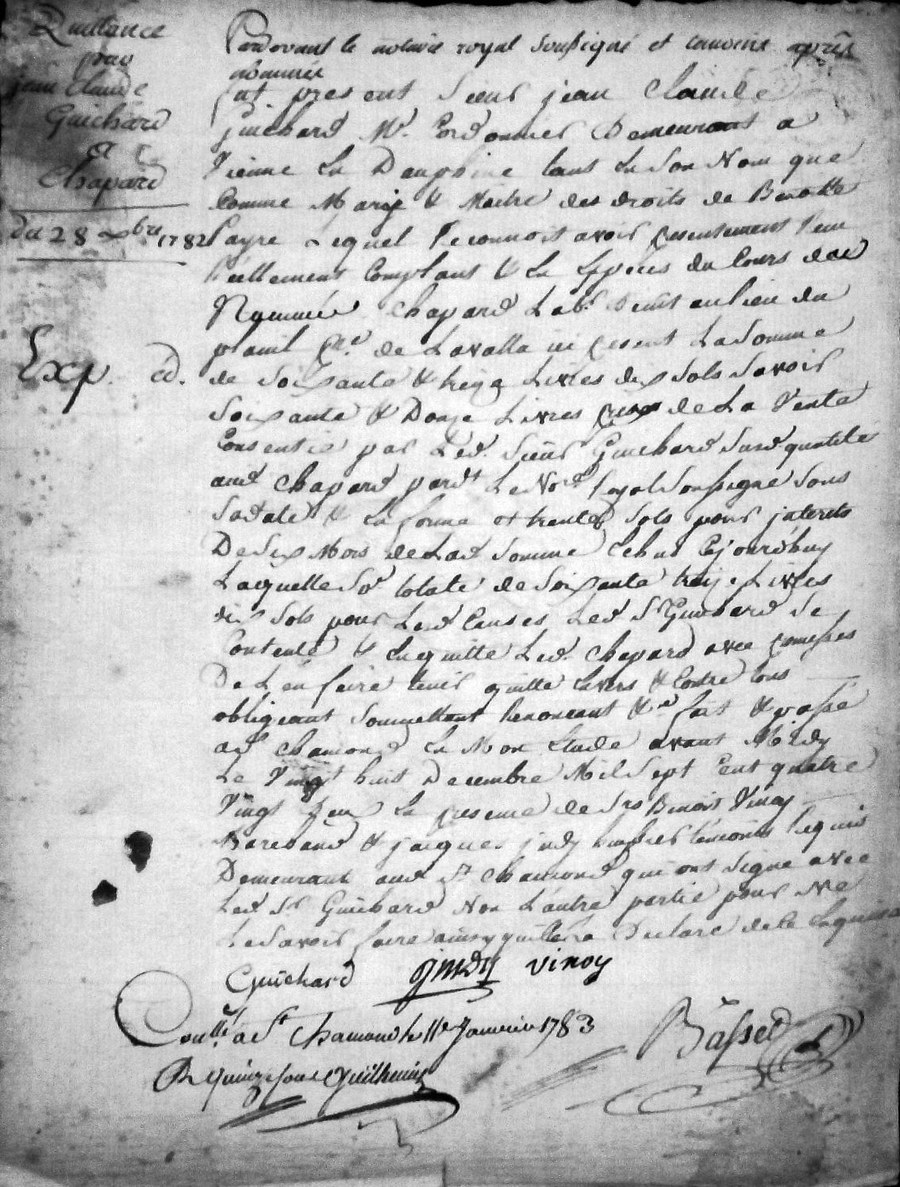 Quittance
par
jean Claude
Guichard
a
Chapard
du 28 xbre 1782
Exp. ed.
Pardevant le notaire royal soussigné et temoins après
nommés
fut present Sieur jean Claude
Guichard Me. Cordonnier Demeurant a
Vienne En Dauphiné tant En Son Nom que
Comme Mary & Maitre des droits de Benoitte
Payre Lequel Reconnoit avoir presentement Reçu
Réellement Comptant & En Especes du Cours de
Chapard Lab. au lieu du
planil de Lavalla ici present La Somme
de Soixante & treize Livres dix Sols Savoir
Soixante & Douze Livres prix de La Vente
Consentie par Led. Sieur Guichard
aud Chapard pardt. Le Nore. Royal Soussigné Sous
Sa date & Sa forme et trente Sols pour jnterets
De Six Mois de Lad Somme Echus Cejourdhuy
Laquelle Se. totale de Soixante treize Livres
dix Sols pour Lesd Causes Led Sr. Guichard Se
Contente & En quitte Led. Chapard avec promesses
De L'en faire tenir quitte Envers & Contre tous
obligeant Soumettant Renonceant &a. fait & passé
a St. Chamond En Mon Etude avant Midy
Le Vingt huit Decembre Mil Sept Cent quatre
Vingt Deux En presence de Srs Benoit Vinoy
& jacques jndy temoins Requis
Demeurant aud St. Chamond qui ont Signé avec
Led Sr. Guichard Non L'autre partie pour Ne
Le Savoir faire ainsy quil a Declaré de ce Enquis
Guichard jndy vinoy
Conllé. a St. Chamond le 11e Janvier 1783
R quinze sous Guilhermin
Basset